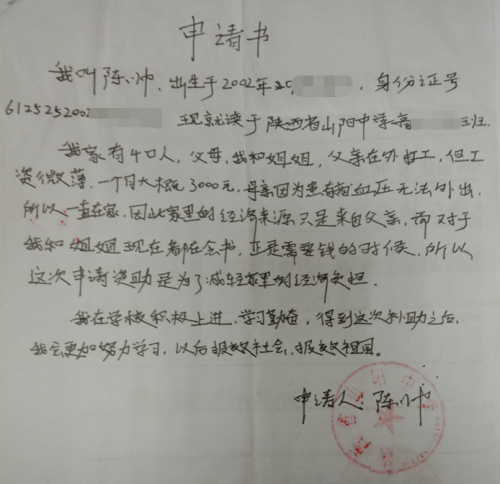 申请书
我叫陈帅,出生于2002年20 ,身份证号
6125252002 现就读于陕西省山阳中学 班
我家有4口人,父母,我和姐姐,父亲在外打工,但工
资微薄,一个月大概3000元,母亲因为患有高血压无法外出,
所以一直在家,因此家里的经济来源只是来自父亲,而对于
我和姐姐现在都在念书,正是需要钱的时候,所以
这次申请资助是为了减轻家里的经济负担.
我在学校积极上进,学习勤奋,得到这次补助之后,
我会更加努力学习,以后报效社会,报效祖国。
申请人:陈帅